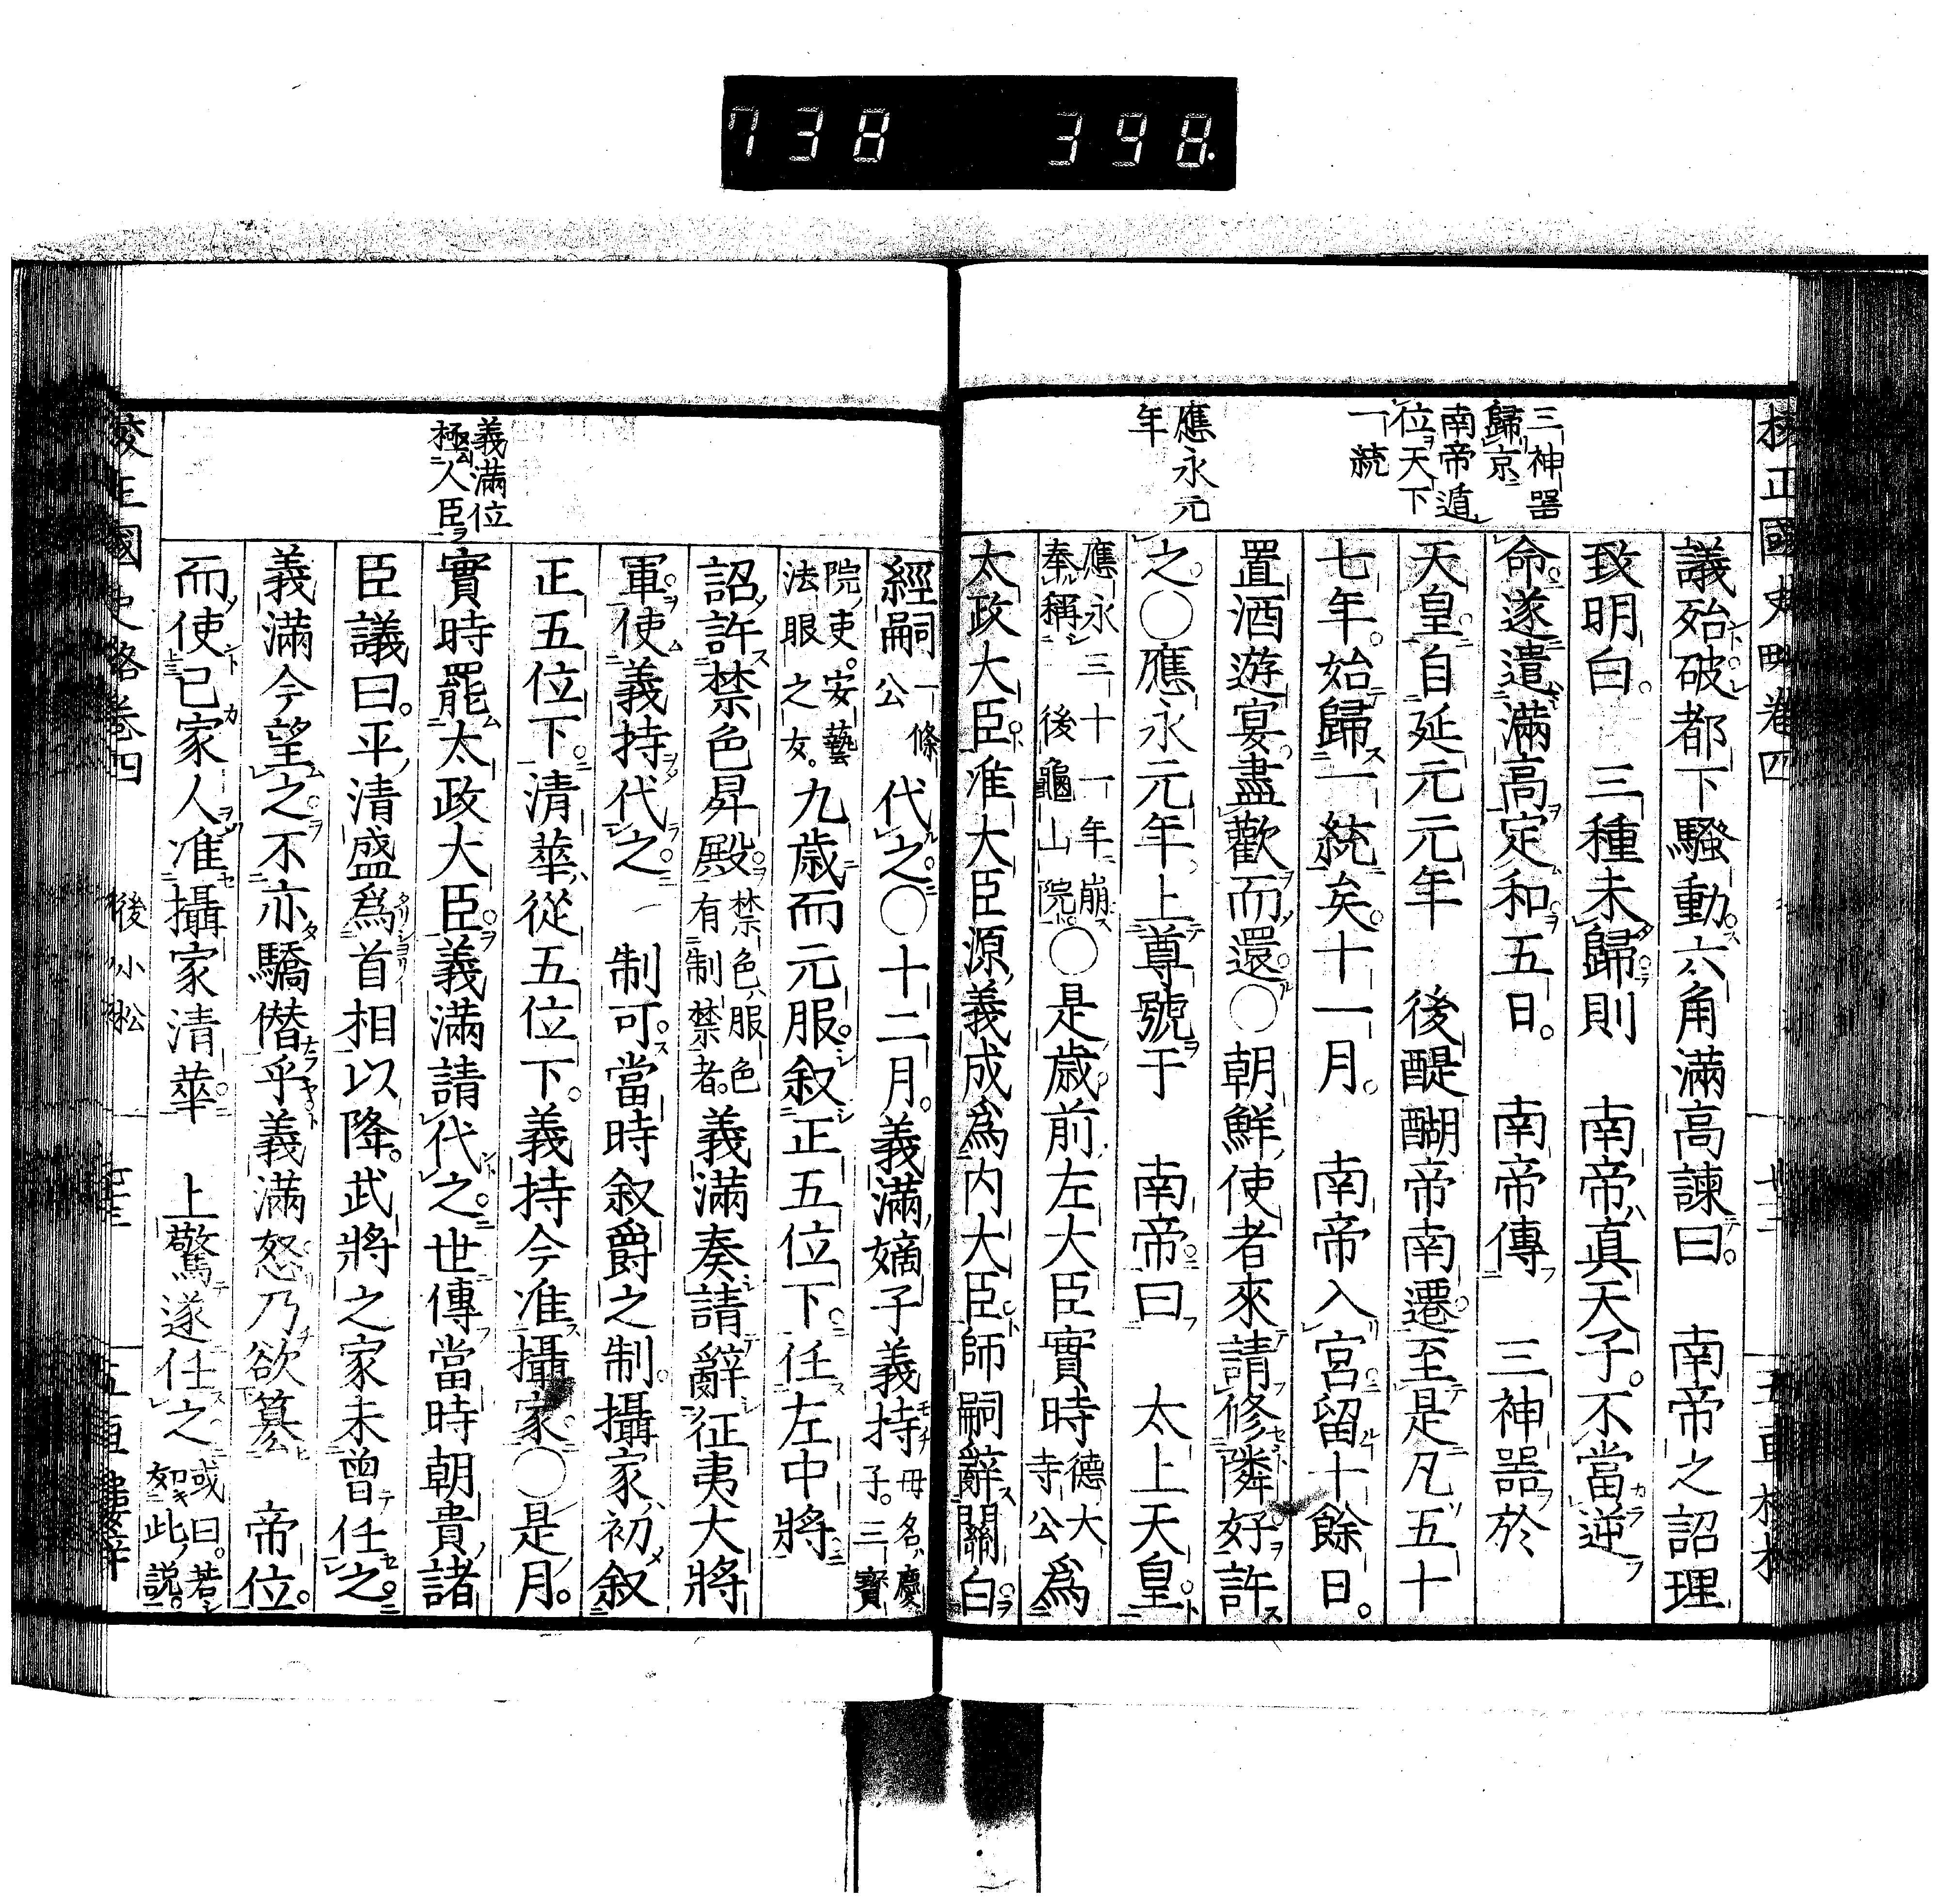 738 398.
校正國史略卷四
三神器
歸京
南帝遁
位天下
一統
應永元
年
議殆破都下騷動六角滿高諫曰。南帝之詔理
致明白。三種未歸則南帝真天子。不當逆
命遂遣滿高定和五日。南帝傳三神器於
天皇。自延元元年後醍醐帝南遷至是凡五十
七年。始歸一統矣。十一月。南帝入宮留十餘日。
置酒遊宴盡歡而還○朝鮮使者來請修隣好許
之。○應永元年上尊號于南帝曰太上天皇
應永三十一年崩
奉稱後龜山院
○是歲前左大臣實時
德大
寺公
爲
太政大臣准大臣源義成爲内大臣師嗣辭關白
義滿位
極人臣
經嗣
一條
公
代之○十二月。義滿嫡子義持
母名慶
子。三寶
院吏。安藝
法眼之女。
九歲而元服。叙正五位下任左中將
詔許禁色昇殿
禁色服色
有制禁者。
義滿奏請辭征夷大將
軍使義持代之制可。當時叙爵之制。攝家初叙
正五位下。清華從五位下。義持今准攝家○是月。
實時罷太政大臣。義滿請代之。世傳當時朝貴諸
臣議曰。平清盛爲首相以降。武將之家未曾任之。
義滿今望之。不亦驕僭乎義滿怒乃欲簒帝位。
而使己家人准攝家清華上驚遂任之
或曰。若
如此說。
校正國史略卷四
後小松